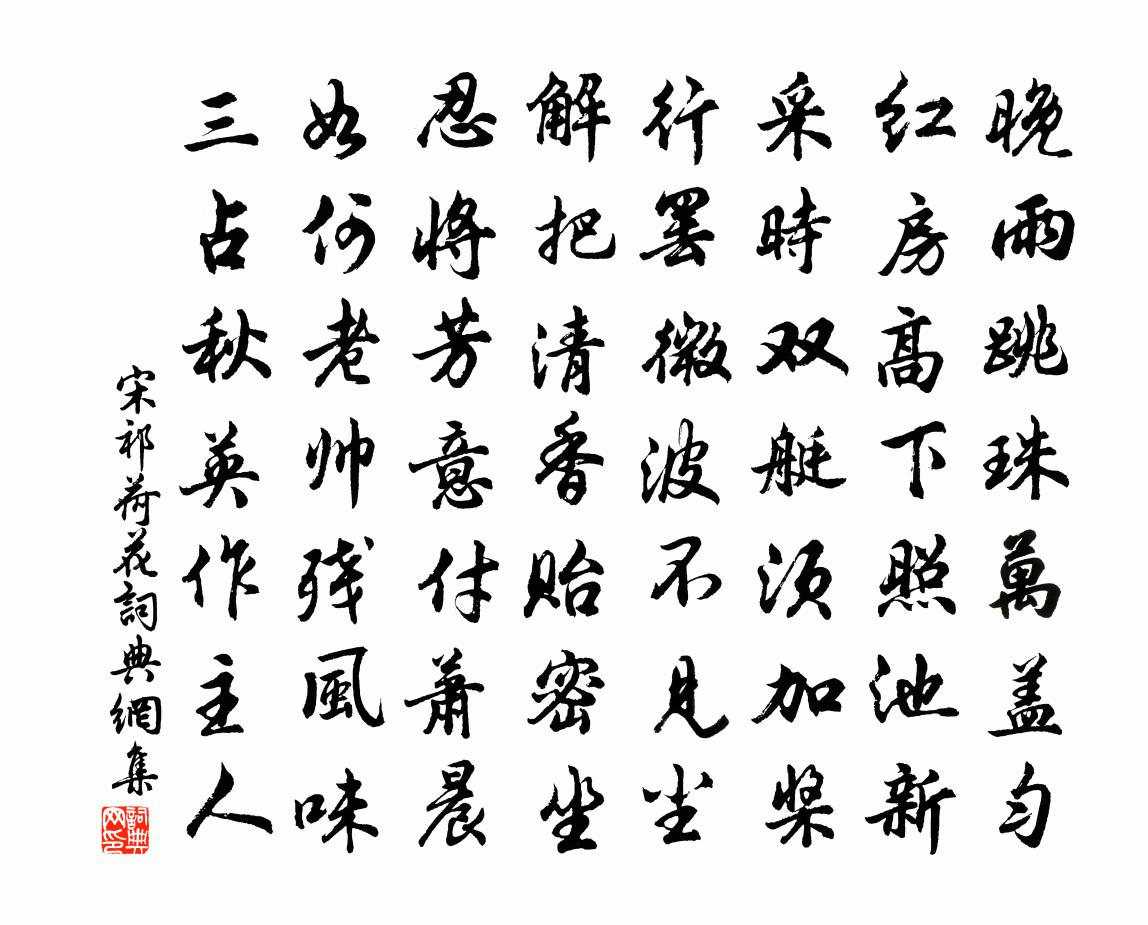 晚雨跳珠萬盖匀
红房高下照池新
采時双艇须加桨
行罢微波不見尘
解把清香贻密坐
忍將芳意付蕭晨
如何老帅残風味
三占秋英作主人
宋祁荷花詞典網集
詞典网印